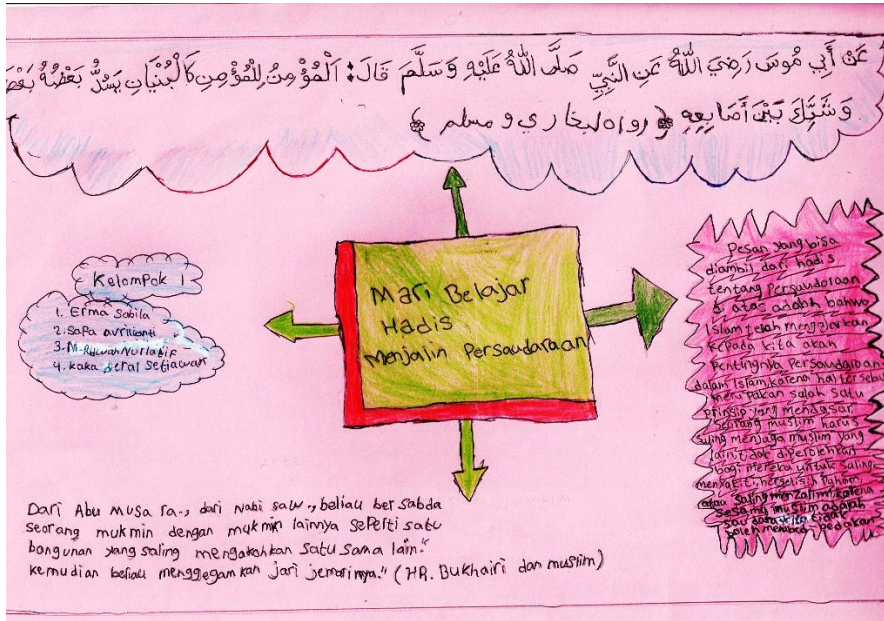 عَنْ أَبِي مُوسَ رَضِيَ اللّٰهُ عَنِ النَّبِيِّ صَلَّى اللّٰهُ عَلَيْهِ وَسَلَّمَ قَالَ: اَلْمُؤْمِنُ لِلْمُؤْمِنِ كَالْبُنْيَانِ يَشُدُّ بَعْضُهُ بَعْضً
وَشَبَّكَ بَيْنَ أَصَابِعِهِ ﴿رواه لبغاري و مسلم﴾
Mari Belajar
Hadis
Menjalin Persaudaraan
Kelompok 1
1. Erma Sabila
2. Sapa avrilianti
3. M. Ridwan Nurlatif
4. kaka Setiawan
Pesan yang bisa
diambil dari hadis
tentang Persaudaraan
di atas adalah bahwa
Islam telah mengajarkan
kepada kita akan
Pentingnya Persaudaraan
dalam Islam, karena hal tersebut
merupakan salah satu
prinsip yang mendasar
Seorang muslim harus
saling menjaga muslim yang
lain, tidak diperbolehkan
bagi mereka untuk saling
menyakiti, berselisih Paham,
atau saling menzalimi, karena
sesama muslim adalah
saudara kita tidak
boleh membeda-bedakan
Dari Abu Musa ra., dari Nabi saw., beliau bersabda
seorang mukmin dengan mukmin lainya seperti satu
bangunan yang saling mengokohkan satu sama lain."
kemudian beliau menggegamkan jari jemarinya." (HR. Bukhairi dan muslim)